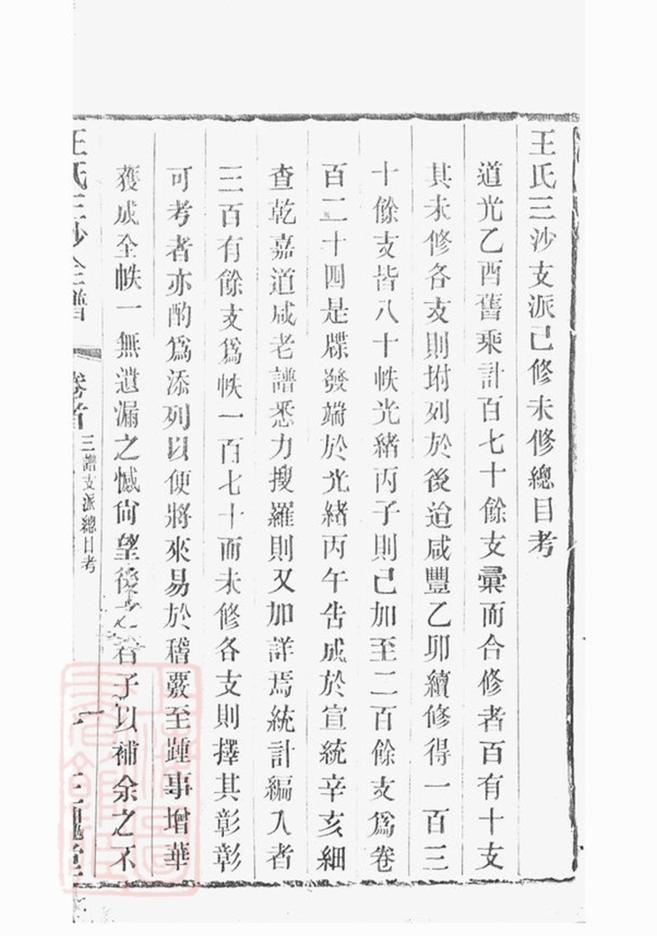 王氏三沙支派已修未修總目考
道光乙酉舊乘計百七十餘支彚而合修者百有十支
其未修各支則坿列於後迨咸豐乙卯續修得一百三
十餘支皆八十帙光緒丙子則已加至二百餘支爲卷
百二十四是牒發端於光緒丙午告成於宣統辛亥細
查乾嘉道咸老譜悉力搜羅則又加詳焉統計編入者
三百有餘支爲帙一百七十而未修各支則擇其彰彰
可考者亦酌爲添列以便將來易於稽覈至踵事增華
蒐成全帙一無遺漏之憾尙望後之君子以補余之不
王氏三沙全譜
卷首
三譜支派總目考
一
三槐堂